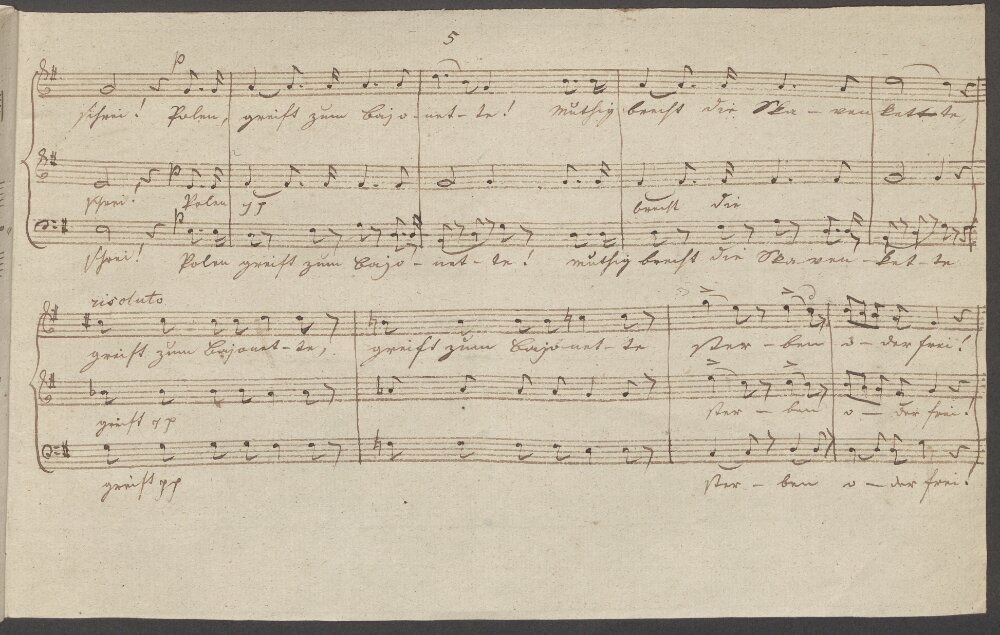 5
p
schrei! Polen, greift zum Bajo-net-te! muthig brecht die Ska-ven kette,
p
schrei! Polen pp brecht die
p
schrei! Polen greift zum Bajo-net-te! muthig brecht die Ska-ven-ket-te
risoluto
greift zum Bajonet-te, greift zum Bajo-net-te ster-ben o-der frei!
greift pp ster-ben o-der frei!
greift pp ster-ben o-der frei!